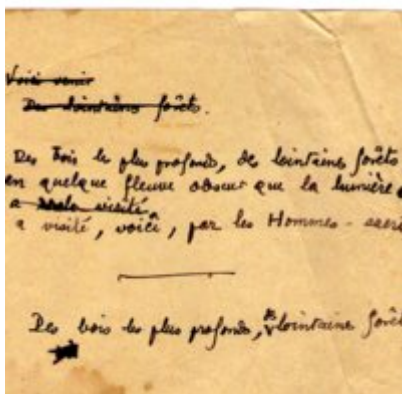 Voici venir
Des lointaines forêts.
Des bois les plus profonds, de lointaines forêts
en quelque fleuve obscur que la lumière
a visité
a visité, voici, par les Hommes - sacr
Des bois les plus profonds, de lointaine forêt